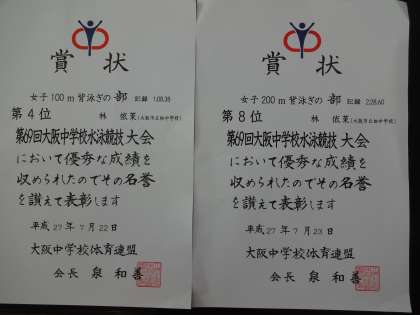 賞状
女子100m背泳ぎの部 記録 1:08.38
第4位 林 依茉(大阪市立
第69回大阪中学校水泳競技大会
において優秀な成績を
収められたのでその名誉
を讃えて表彰します
平成27年7月22日
大阪中学校体育連盟
会長 泉 和善
賞状
女子200m背泳ぎの部 記録 2:28.60
第8位 林 依茉(大阪市立
第69回大阪中学校水泳競技大会
において優秀な成績を
収められたのでその名誉
を讃えて表彰します
平成27年7月23日
大阪中学校体育連盟
会長 泉 和善